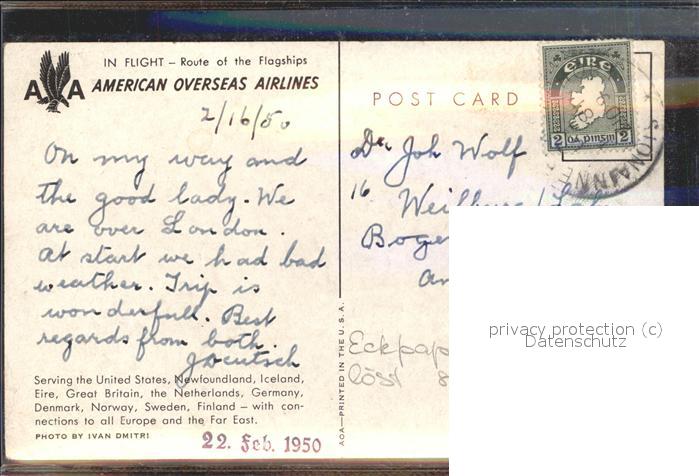 IN FLIGHT – Route of the Flagships
A A AMERICAN OVERSEAS AIRLINES
2/16/50
On my way and
the good lady. We
are over London.
At start we had bad
weather. Trip is
wonderfull. Best
regards from both.
JDeutsch
Serving the United States, Newfoundland, Iceland,
Eire, Great Britain, the Netherlands, Germany,
Denmark, Norway, Sweden, Finland – with con-
nections to all Europe and the Far East.
PHOTO BY IVAN DMITRI
22. Feb. 1950
AOA—PRINTED IN THE U.S.A.
POST CARD
EIRE
2 PINGIN 2
SIONAINNE
Dr. Joh Wolf
16 Weilburg/Lahn
Boge
Eckpap
löst 8
privacy protection (c)
Datenschutz